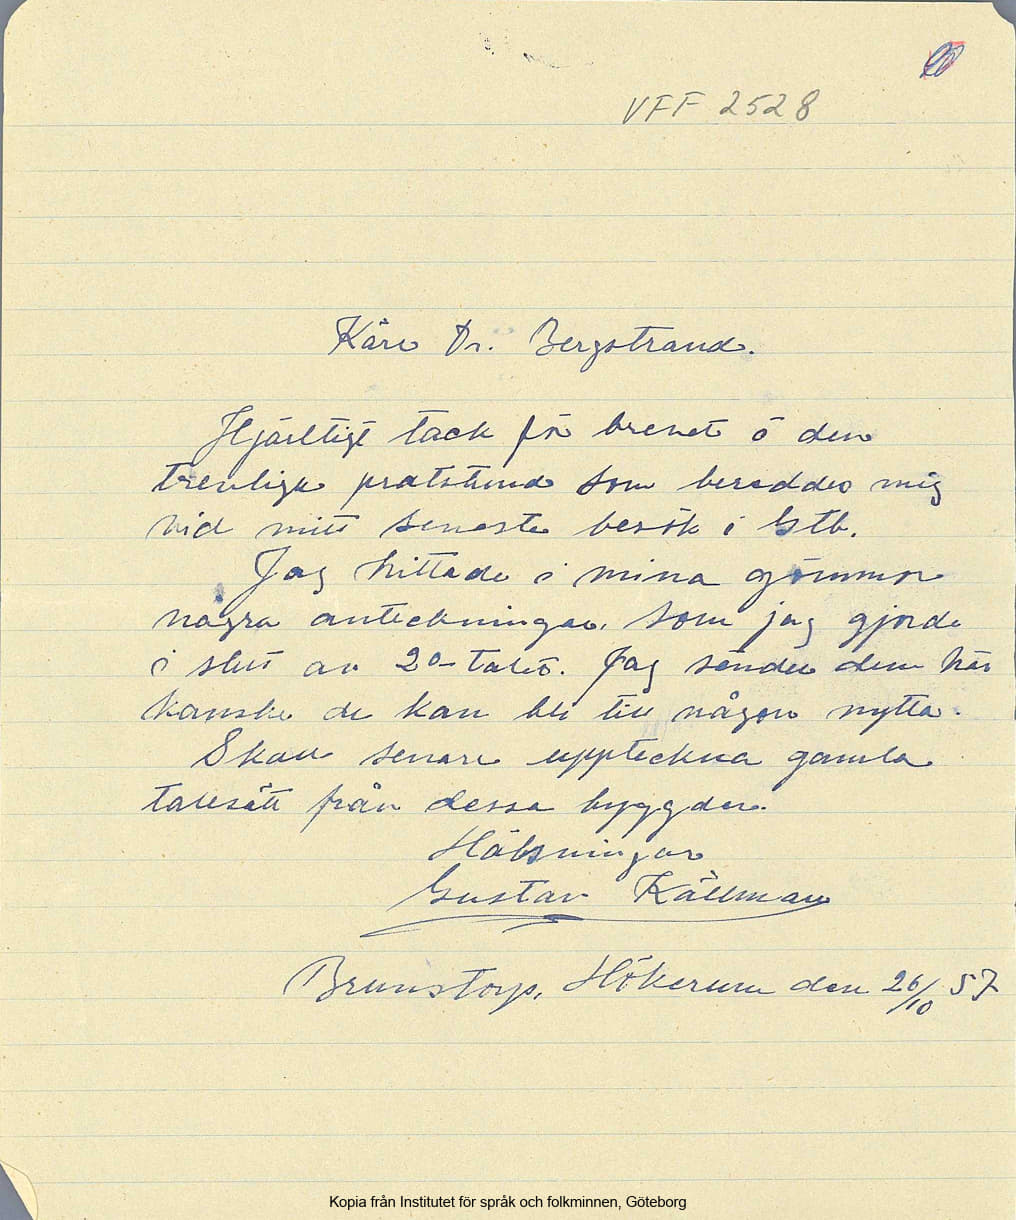 VFF 2528
Käre Dr. Bergstrand.
Hjärtligt tack för brevet o den
trevliga pratstund som bereddes mig
vid mitt senaste besök i Gtb.
Jag hittade i mina gömmor
några anteckningar, som jag gjorde
i slut av 20-talet. Jag sänder dem här
kanske de kan bli till någon nytta.
Skall senare uppteckna gamla
talesätt från dessa byggder.
Hälsningar
Gustav Källman
Brunstorp, Hökerum den 26/10 57
Kopia från Institutet för språk och folkminnen, Göteborg